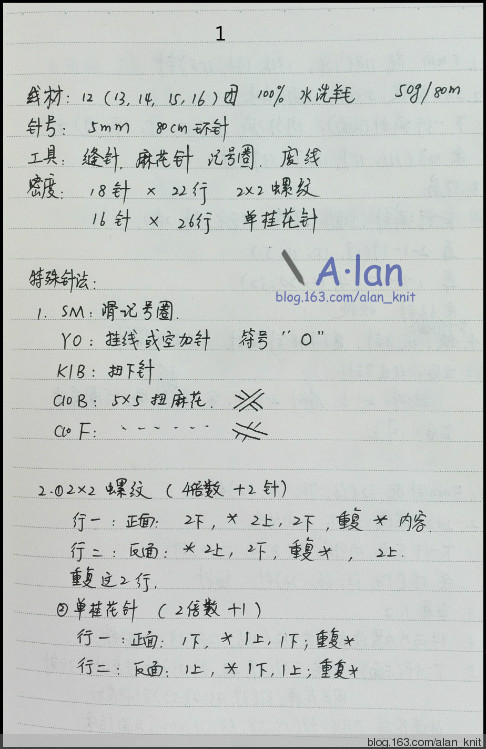 1
线材: 12 (13, 14, 15, 16) 团 100% 水洗羊毛 50g/80m
针号: 5mm 80cm环针
工具: 缝针, 麻花针 记号圈. 废线
密度: 18针 × 22行 2×2 螺纹
16针 × 26行 单桂花针
A·lan
blog.163.com/alan_knit
特殊针法:
1. SM: 滑记号圈.
YO: 挂线或空加针 符号 "O"
K1B: 扭下针.
C10B: 5×5 扭麻花.
C10F: - - - - - -
2.①2×2 螺纹 (4倍数+2针)
行一: 正面: 2下, * 2上, 2下, 重复 * 内容.
行二: 反面: * 2上, 2下, 重复*, 2上.
重复这2行.
②单桂花针 (2倍数+1)
行一: 正面: 1下, * 1上, 1下; 重复*
行二: 反面: 1上, * 1下, 1上; 重复*
blog.163.com/alan_knit